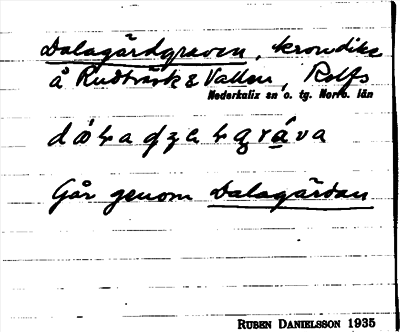 Dalagärdgraven, krondike
å Rudträsk & Vallen, Rolfs
Nederkalix sn o. tg. Norrb. län
Går genom Dalagärdan
RUBEN DANIELSSON 1935